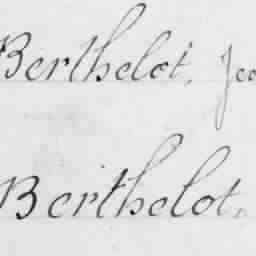 Berthelot, Jea
Berthelot,